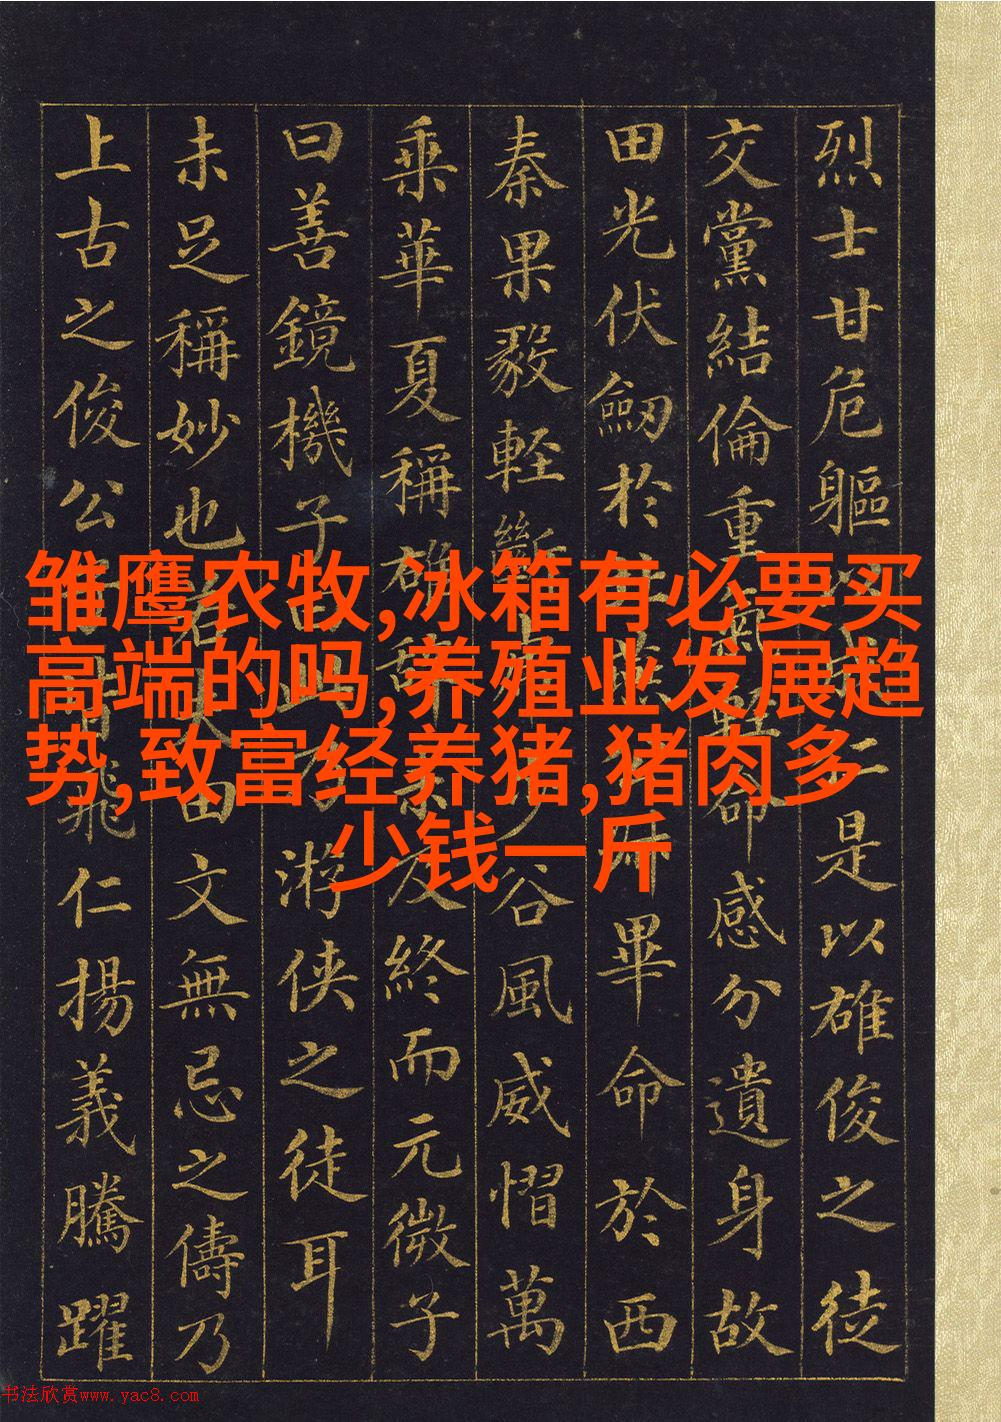 烈士甘危軀仁是以雄俊之徒
交黨結倫重命感分遺身故
田光伏劒於畢命於西
秦果毅輕斷谷風威慴萬
乘華夏稱雄辭友終而元微子
曰善鏡機子游俠之徒耳
未足稱妙也若夫田文無忌之儔乃
上古之俊公飛仁揚義騰躍
雏鹰农牧,冰箱有必要买
高端的吗,养殖业发展趋
势,致富经养猪,猪肉多
少钱一斤
书法欣赏www.yac8.com